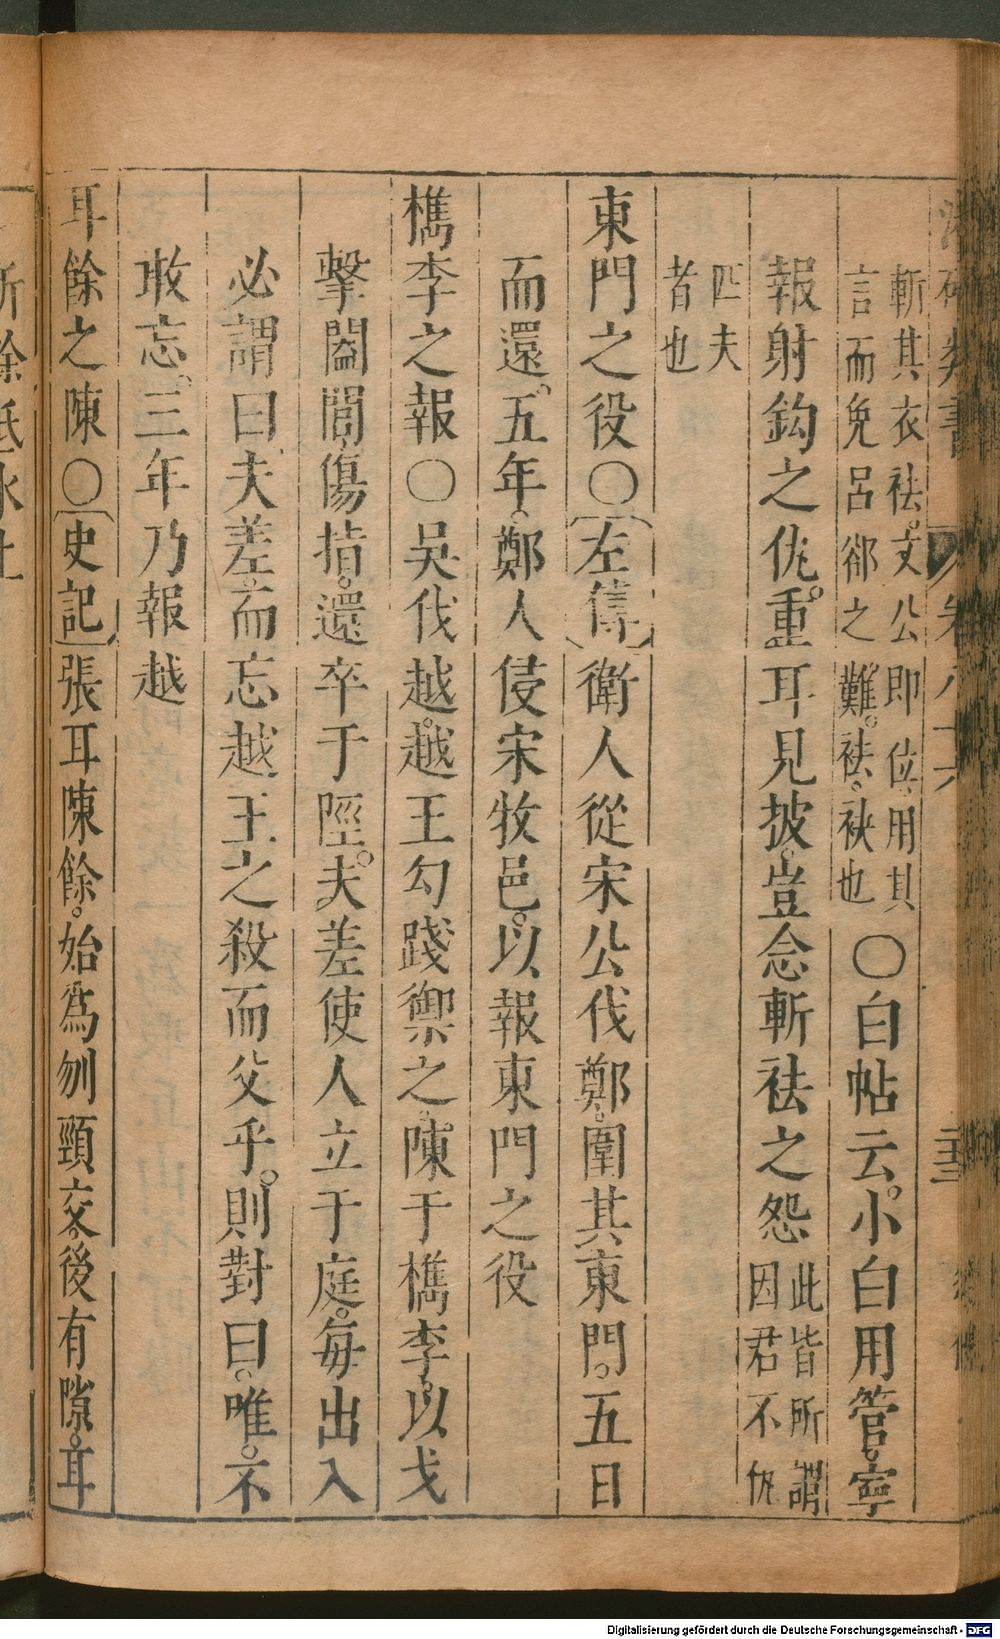 斬其衣袪。文公即位。用其
言而免呂郤之難。袪。袂也
○白帖云。小白用管。寧
報射鈎之仇。重耳見披。豈念斬袪之怨
此皆所謂
因君不仇
匹夫
者也
東門之役○〔左傳〕衛人從宋公伐鄭。圍其東門。五日
而還。五年。鄭人侵宋牧邑。以報東門之役
檇李之報○吳伐越。越王勾踐禦之。陳于檇李。以戈
擊闔閭。傷指。還卒于陘。夫差使人立于庭。每出入
必謂曰。夫差。而忘越王之殺而父乎。則對曰。唯。不
敢忘。三年乃報越
耳餘之陳○〔史記〕張耳陳餘。始爲刎頸交。後有隙。耳
Digitalisierung gefördert durch die Deutsche Forschungsgemeinschaft - DFG